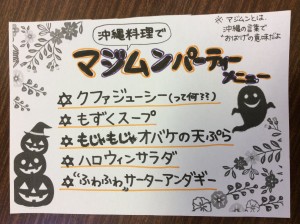 沖縄料理で
マジムンパーティー
メニュー
※マジムンとは、
沖縄の言葉で
"おばけ"の意味だよ
☆クファジューシー(って何???)
☆もずくスープ
☆もじゃもじゃオバケの天ぷら
☆ハロウィンサラダ
☆"ふわふわ"サーターアンダギー